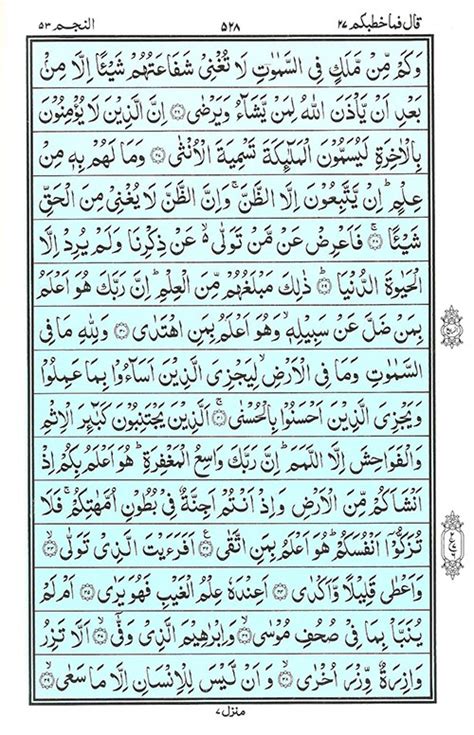 قال فما خطبكم ٢٧ ٥٢٨ النجم ٥٣
وَكَمْ مِّنْ مَّلَكٍ فِي السَّمٰوٰتِ لَا تُغْنِيْ شَفَاعَتُهُمْ شَيْئًا اِلَّا مِنْۢ
بَعْدِ اَنْ يَّاْذَنَ اللّٰهُ لِمَنْ يَّشَآءُ وَيَرْضٰى ۝٢٦ اِنَّ الَّذِيْنَ لَا يُؤْمِنُوْنَ
بِالْاٰخِرَةِ لَيُسَمُّوْنَ الْمَلٰٓئِكَةَ تَسْمِيَةَ الْاُنْثٰى ۝٢٧ وَمَا لَهُمْ بِهٖ مِنْ
عِلْمٍ ؕ اِنْ يَّتَّبِعُوْنَ اِلَّا الظَّنَّ ۚ وَاِنَّ الظَّنَّ لَا يُغْنِيْ مِنَ الْحَقِّ
شَيْئًا ۝٢٨ فَاَعْرِضْ عَنْ مَّنْ تَوَلّٰى ۙ۬ عَنْ ذِكْرِنَا وَلَمْ يُرِدْ اِلَّا
الْحَيٰوةَ الدُّنْيَا ۝٢٩ ذٰلِكَ مَبْلَغُهُمْ مِّنَ الْعِلْمِ ؕ اِنَّ رَبَّكَ هُوَ اَعْلَمُ
بِمَنْ ضَلَّ عَنْ سَبِيْلِهٖ ۙ وَهُوَ اَعْلَمُ بِمَنِ اهْتَدٰى ۝٣٠ وَلِلّٰهِ مَا فِي
السَّمٰوٰتِ وَمَا فِي الْاَرْضِ ۙ لِيَجْزِيَ الَّذِيْنَ اَسَآءُوْا بِمَا عَمِلُوْا
وَيَجْزِيَ الَّذِيْنَ اَحْسَنُوْا بِالْحُسْنٰى ۝٣١ اَلَّذِيْنَ يَجْتَنِبُوْنَ كَبٰٓئِرَ الْاِثْمِ
وَالْفَوَاحِشَ اِلَّا اللَّمَمَ ؕ اِنَّ رَبَّكَ وَاسِعُ الْمَغْفِرَةِ ؕ هُوَ اَعْلَمُ بِكُمْ اِذْ
اَنْشَاَكُمْ مِّنَ الْاَرْضِ وَاِذْ اَنْتُمْ اَجِنَّةٌ فِيْ بُطُوْنِ اُمَّهٰتِكُمْ ۚ فَلَا
تُزَكُّوْۤا اَنْفُسَكُمْ ؕ هُوَ اَعْلَمُ بِمَنِ اتَّقٰى ۝٣٢ اَفَرَءَيْتَ الَّذِيْ تَوَلّٰى ۝٣٣
وَاَعْطٰى قَلِيْلًا وَّاَكْدٰى ۝٣٤ اَعِنْدَهٗ عِلْمُ الْغَيْبِ فَهُوَ يَرٰى ۝٣٥ اَمْ لَمْ
يُنَبَّاْ بِمَا فِيْ صُحُفِ مُوْسٰى ۝٣٦ وَاِبْرٰهِيْمَ الَّذِيْ وَفّٰى ۝٣٧ اَلَّا تَزِرُ
وَازِرَةٌ وِّزْرَ اُخْرٰى ۝٣٨ وَاَنْ لَّيْسَ لِلْاِنْسَانِ اِلَّا مَا سَعٰى ۝٣٩
منزل ٧